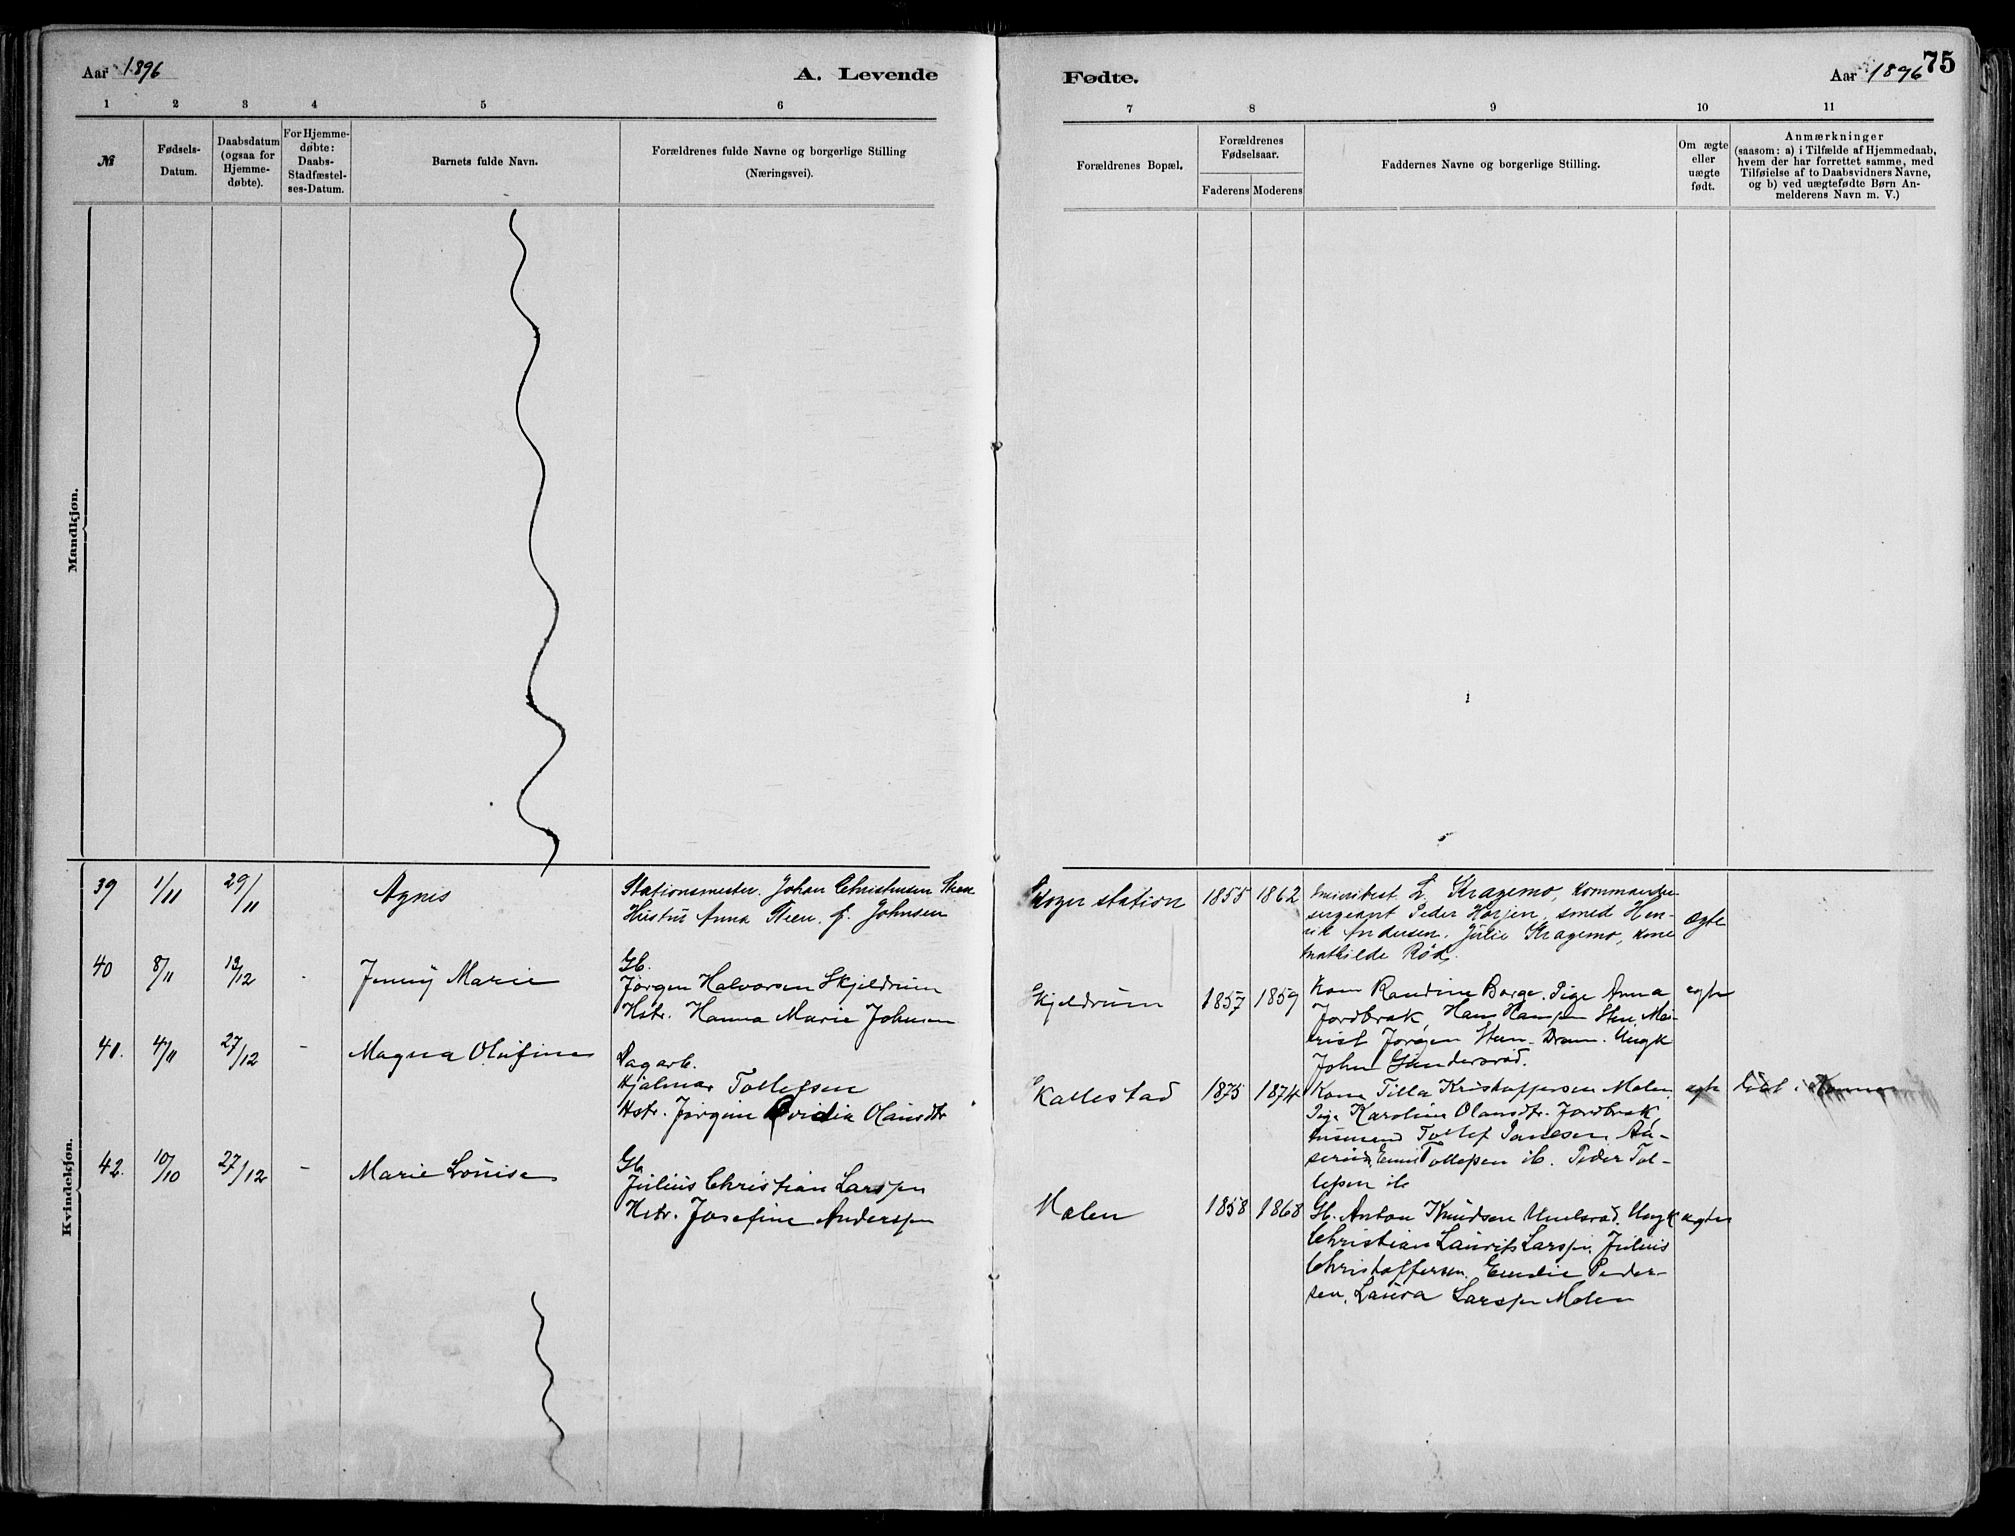 Aar 1896
A. Levende
Fødte.
Aar 1896
75
1 2 3 4 5 6 7 8 9 10 11
№
Fødsels-
Datum.
Daabsdatum
(ogsaa for
Hjemme-
døbte).
For Hjemme-
døbte:
Daabs-
Stadfæstel-
ses-Datum.
Barnets fulde Navn.
Forældrenes fulde Navne og borgerlige Stilling
(Næringsvei).
Forældrenes Bopæl.
Forældrenes
Fødselsaar.
Faderens Moderens
Faddernes Navne og borgerlige Stilling.
Om ægte
eller
uægte
født.
Anmærkninger
(saasom: a) i Tilfælde af Hjemmedaab,
hvem der har forrettet samme, med
Tilføielse af to Daabsvidners Navne,
og b) ved uægtefødte Børn An-
melderens Navn m. V.)
Mandkjøn.
Kvindekjøn.
39 1/11 29/11 Agnes
Stationsmester. Johan Christensen
Hustru Anna f. Johnsen
Skoger station 1855 1862
L. Kragemo, Kommander-
sergeant Peder Horjen, smed Hen-
rik Andersen. Julie Kragemo, kone
Mathilde Rød.
Ægte
40 8/11 13/12 - Jenny Marie
Gb.
Jørgen Halvorsen Skjeldrum
Hstr. Hanna Marie Johnsen
Skjeldrum 1857 1859
Kone Randine Borge. Pige Anna
Jordbrek, Hans Hansen
Jørgen Steen. Dram. Ungk
John Gundersrød.
egte
41. 4/11 27/12 - Magna Olufine
Dagarb.
Hjalmar Tollefsen
Hstr. Jørgine Olausdtr
Kallestad 1875 1874
Kone Tilla Kristoffersen Molen,
Pige Karoline Olausdtr. Jordbrek
Tollef
Tollefsen ib. Peder Tol-
lefsen ib
egte
42. 10/10 27/12 - Marie Louise
Gb.
Julius Christian Larssen
Hstr. Josefine Anderssen
Molen 1858 1868
Gb. Anton Knudsen Ungk
Christian Laurits Larssen, Julius
Christoffersen. Emilie Peder-
sen, Laura Larssen Molen
egte